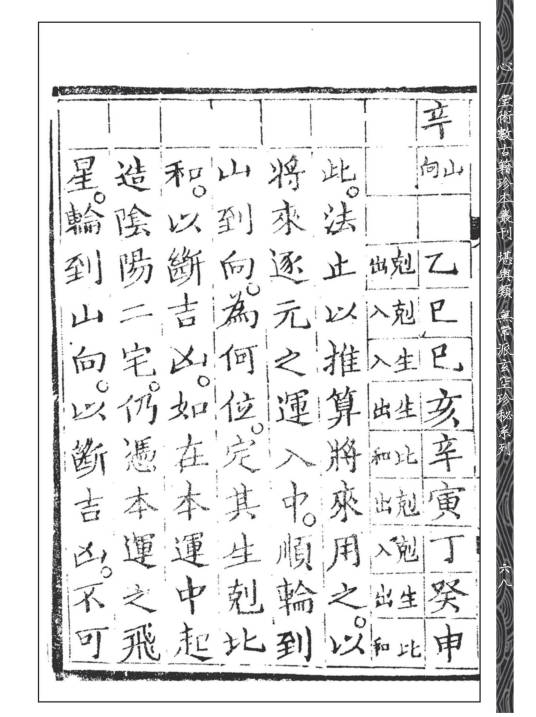 辛
山向
乙巳巳亥辛寅丁癸申
尅出 尅入 生入 生出 比和 尅出 尅入 生出 比和
此。法止以推算將來用之。以
將來逐元之運入中。順輪到
山到向。為何位。定其生尅比
和。以斷吉凶。如在本運中起
造陰陽二宅。仍憑本運之飛
星。輪到山向。以斷吉凶。不可
心一堂術數古籍珍本叢刊 堪輿類 無常派玄空珍秘系列
六八